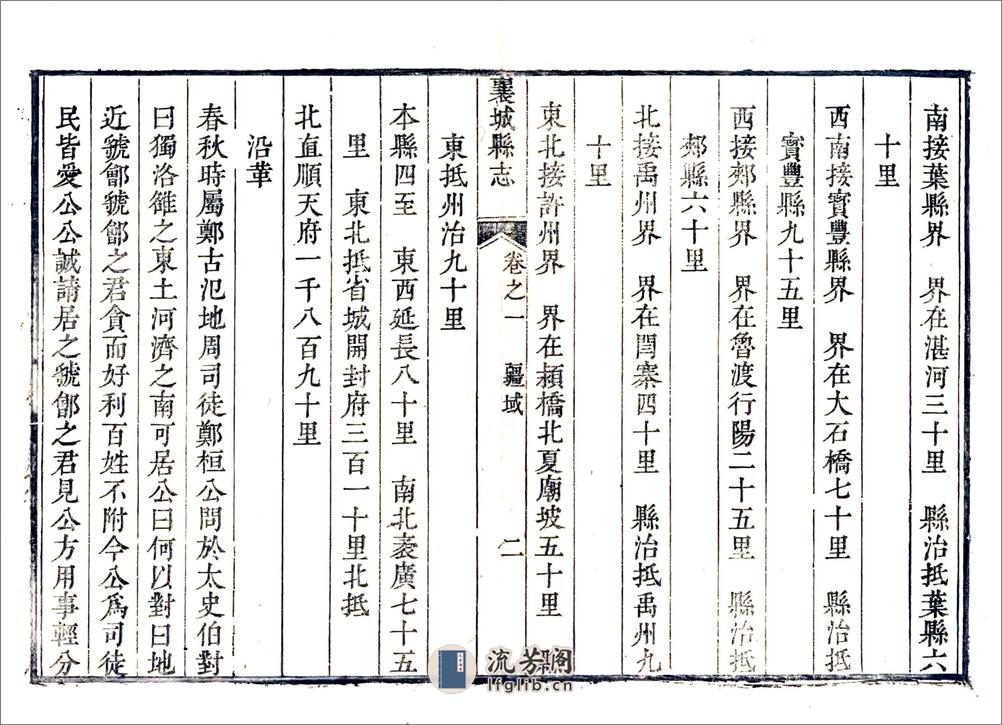 南接葉縣界　界在湛河三十里　縣治抵葉縣六
十里
西南接寳豐縣界　界在大石橋七十里　縣治抵
寳豐縣九十五里
西接郟縣界　界在魯渡行陽二十五里　縣治抵
郟縣六十里
北接禹州界　界在閆寨四十里　縣治抵禹州九
十里
東北接許州界　界在潁橋北夏廟坡五十里
襄城縣志　卷之一　疆域　二
東抵州治九十里
本縣四至　東西延長八十里　南北袤廣七十五
里　東北抵省城開封府三百一十里北抵
北直順天府一千八百九十里
沿革
春秋時屬鄭古氾地周司徒鄭桓公問於太史伯對
曰獨洛雒之東土河濟之南可居公曰何以對曰地
近虢鄶虢鄶之君貪而好利百姓不附今公爲司徒
民皆愛公公誠請居之虢鄶之君見公方用事輕分
流芳閣
lfglib.cn